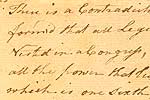 There is a Contradict
formed that all Lege
Vested in a Congress,
all the power that the
which is one Sixth